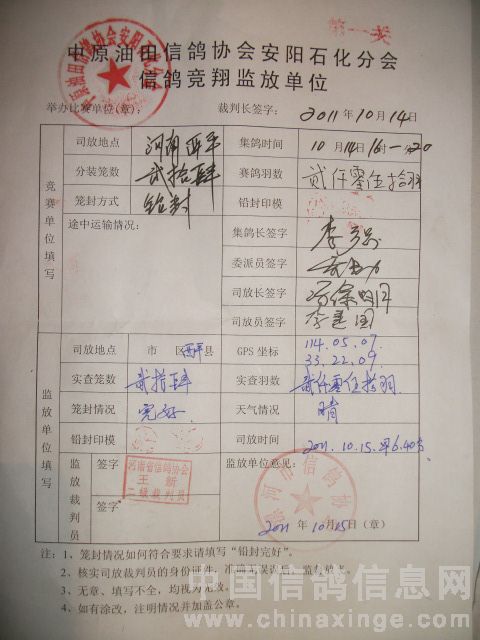 第一关
中原油田信鸽协会安阳石化分会
信鸽竞翔监放单位
举办比赛单位(章): 裁判长签字: 2011年10月14日
竞赛单位填写
司放地点 河南西平 集鸽时间 10月14日16时-20
分装笼数 贰拾肆 赛鸽羽数 贰仟零伍拾羽
笼封方式 铅封 铅封印模
途中运输情况: 集鸽长签字
委派员签字
司放长签字
司放员签字 李建国
监放单位填写
司放地点 市 区 西平县 GPS 坐标 114.05.07.
33.22.09.
实查笼数 贰拾肆 实查羽数 贰仟零伍拾羽.
笼封情况 完好. 天气情况 晴
铅封印模 司放时间 2011.10.15.早6.40分
监放裁判员 签字 河南省信鸽协会
王新
二级裁判员
签字
监放单位意见:
漯河市信鸽协会
2011年10月15日(章)
注:1、笼封情况如何符合要求请填写“铅封完好”。
2、核实司放裁判员的身份证件,准确无误后,监放鸽车。
3、无章、填写不全,均视为无效。
4、如有涂改,注明情况并加盖公章。
中国信鸽信息网
www.chinaxinge.com